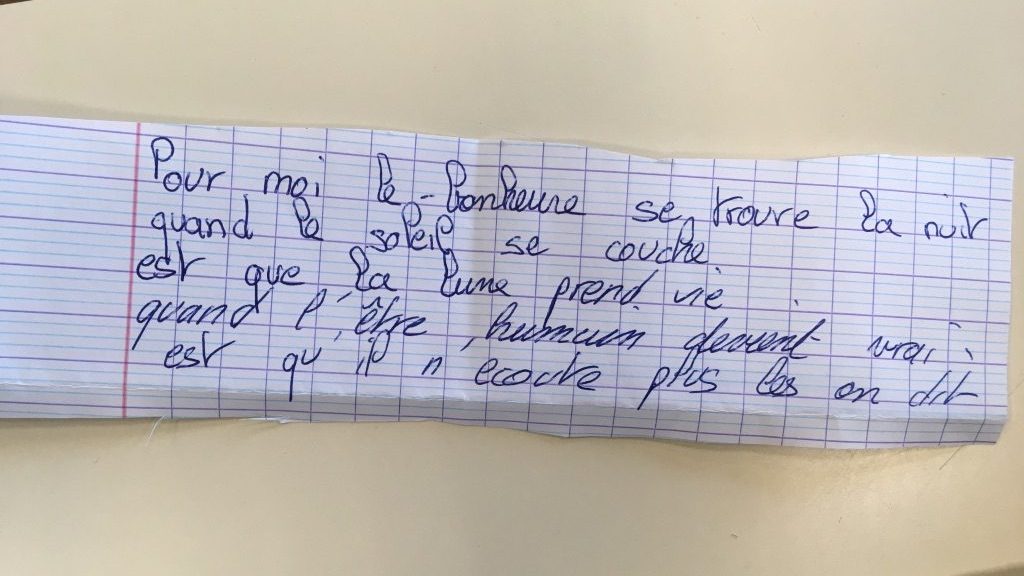 Pour moi le bonheure se trouve la nuit
quand le soleil se couche
est que la lune prend vie
quand l'être humain devient vrai
est qu'il n ecoute plus les on dit